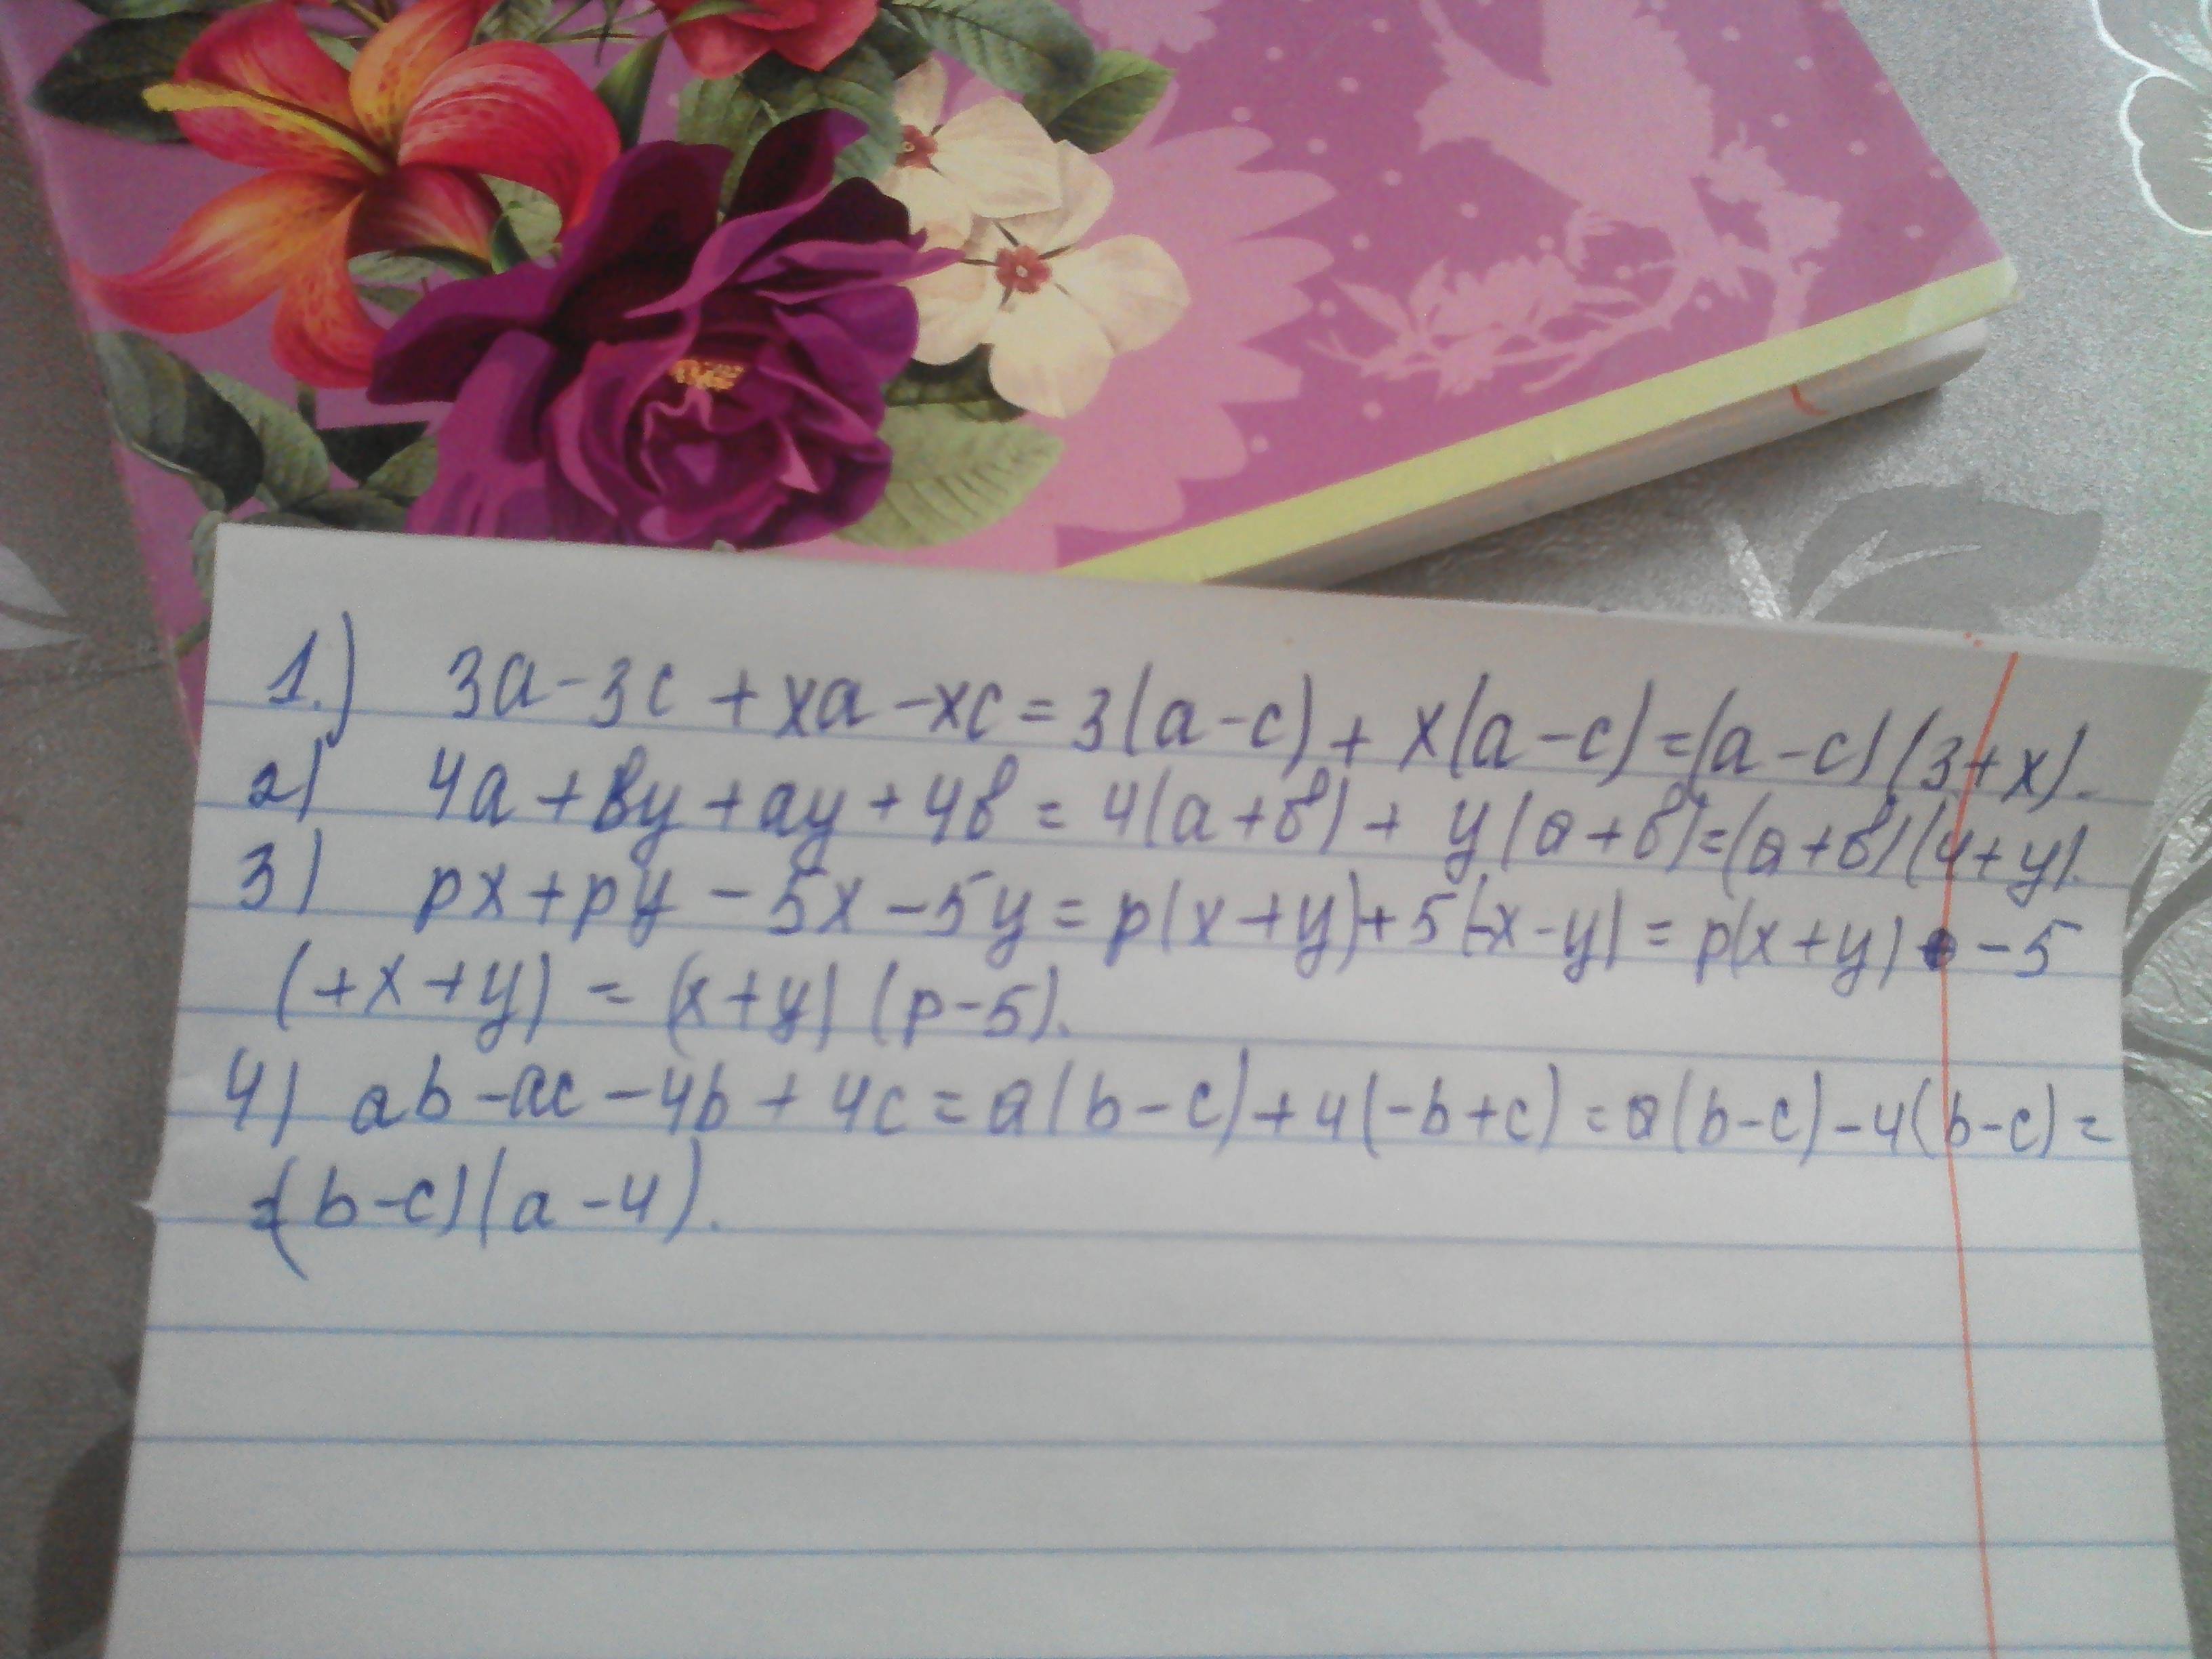 1.) 3a-3c+xa-xc=3(a-c)+x(a-c)=(a-c)(3+x).
2) 4a+вy+ay+4в=4(a+в)+y(a+в)=(a+в)(4+y).
3) px+py-5x-5y=p(x+y)+5(-x-y)=p(x+y)-5
(+x+y)=(x+y)(p-5).
4) ab-ac-4b+4c=a(b-c)+4(-b+c)=a(b-c)-4(b-c)=
=(b-c)(a-4).